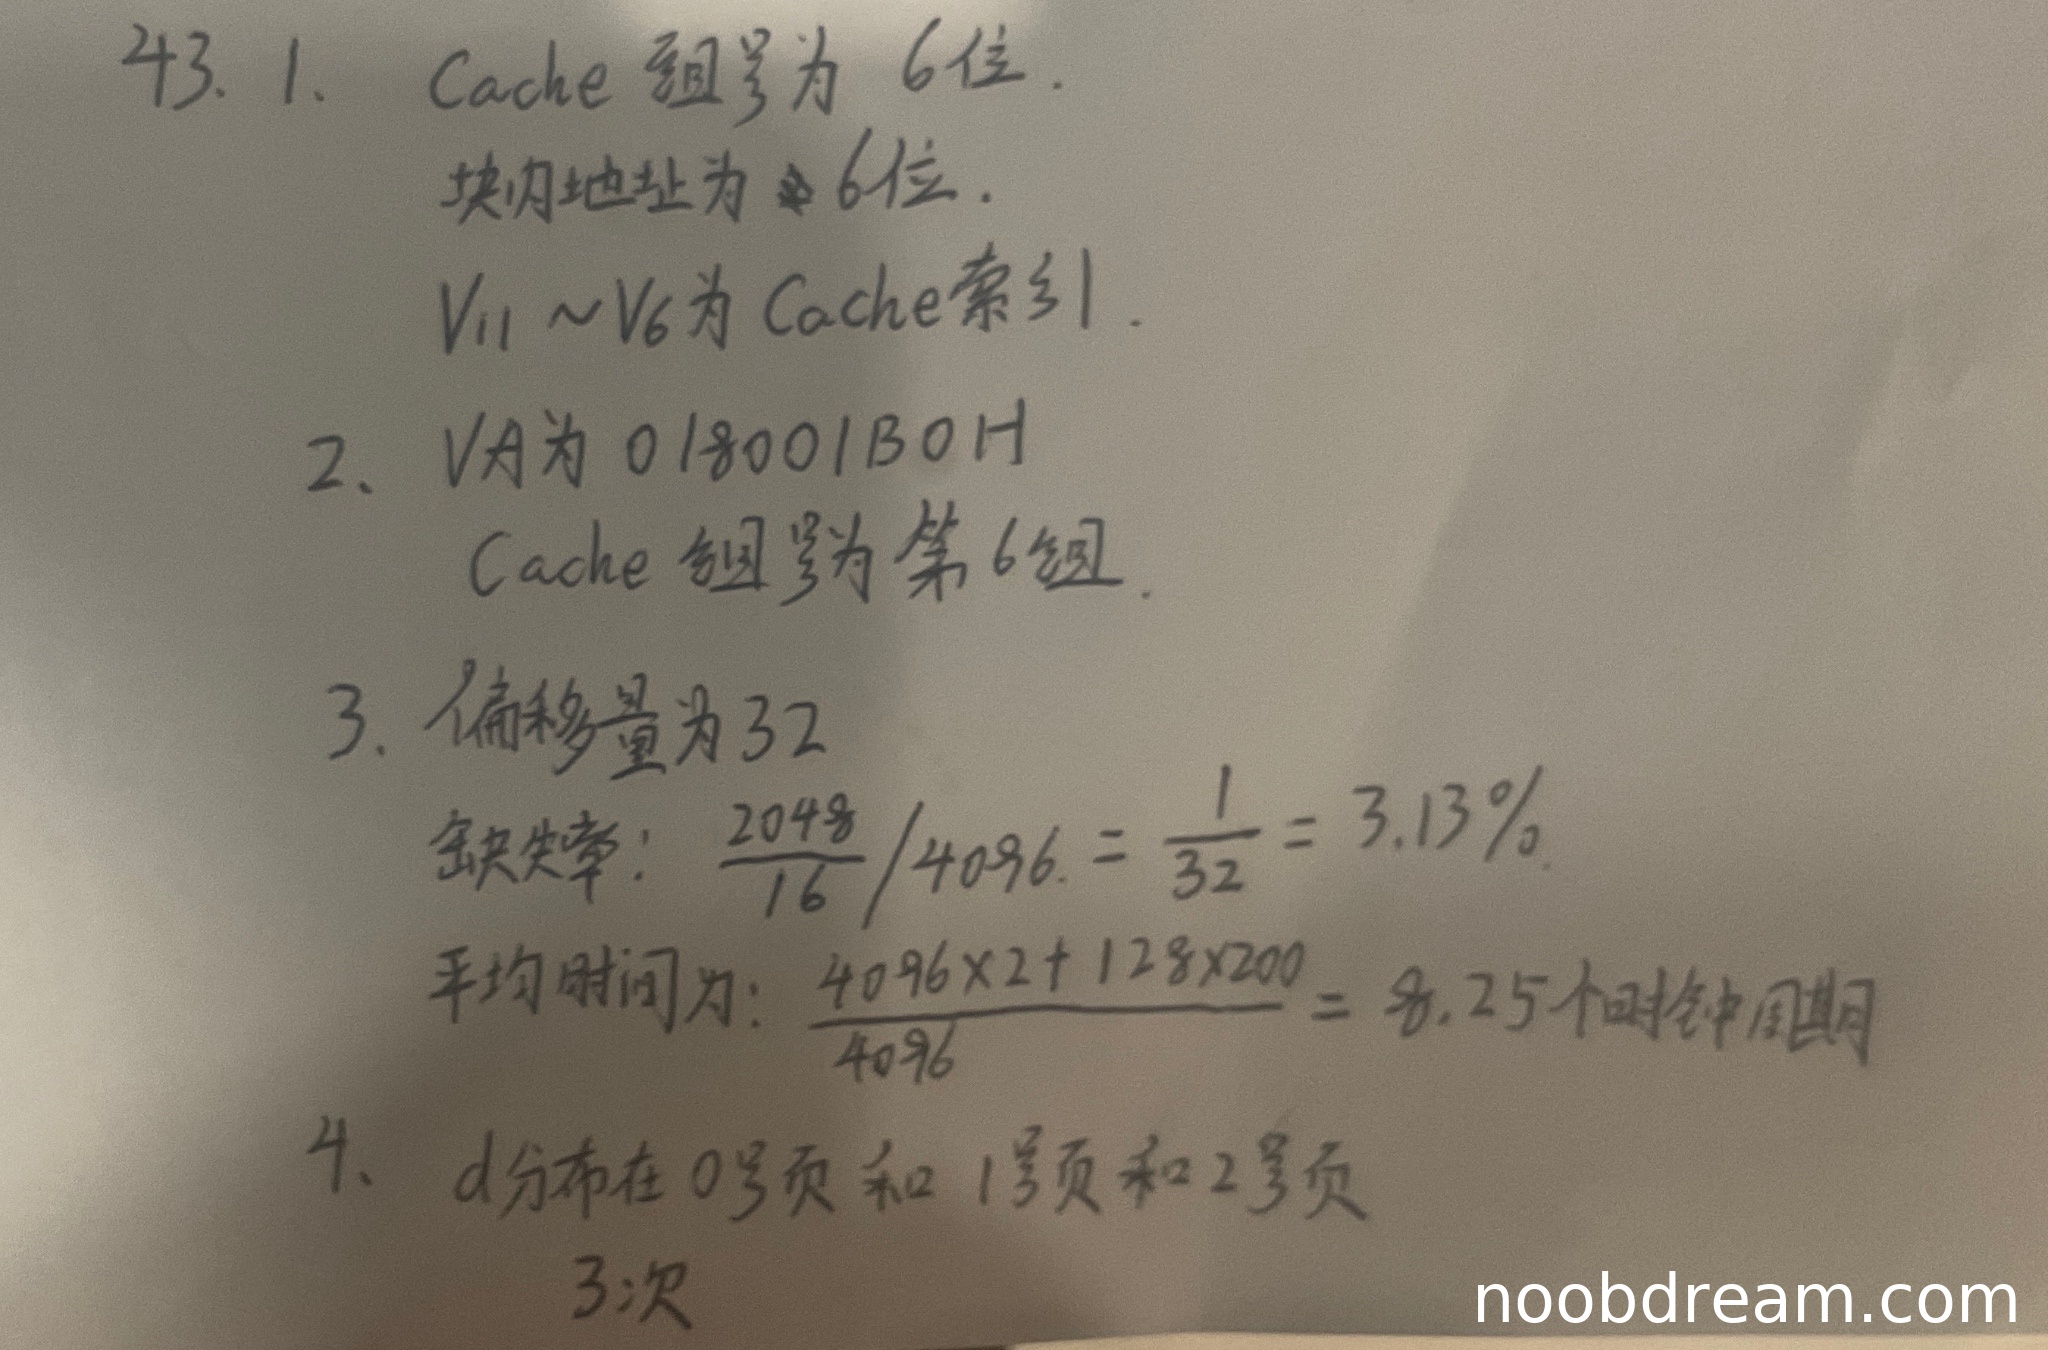 43. 1. Cache 组号为 6位.
块内地址为 6位.
V11 ~ V6为 Cache索引.
2、 VA为 018001B0H
Cache 组号为第6组.
3. 偏移量为32
缺失率: 2048/16 / 4096. = 1/32 = 3.13%.
平均时间为: 4096×2+128×200 / 4096 = 8.25个时钟周期
4、 d分布在 0号页 和 1号页 和 2号页
3次
noobdream.com